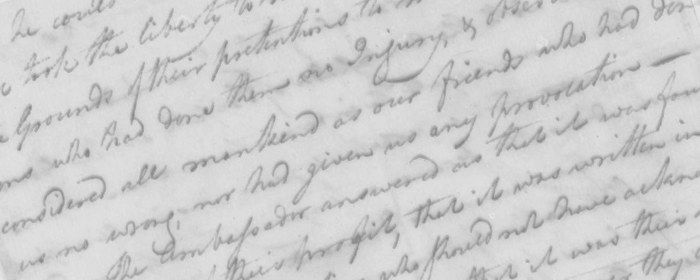 he could
took the liberty to
Grounds of their pretentions to
who had done them no Injury, & obser
considered all mankind as our friends who had don
us no wrong, nor had given us any provocation —
The Ambassador answered us that it was fou
their profit, that it was written in
who should not have ackno
that it was their
they